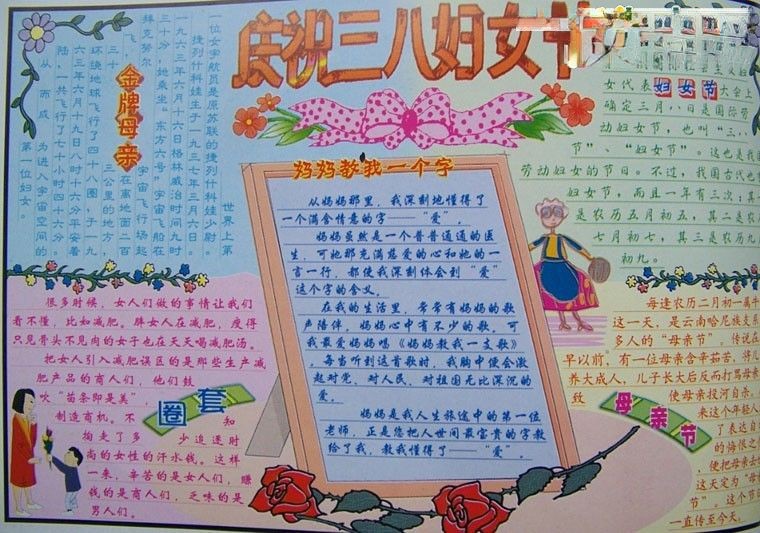 庆祝三八妇女节
金牌母亲
世界上第
一位女宇航员是原苏联的捷列什科娃少尉。
捷列什科娃生于一九三七年三月六日。
一九六三年六月十六日格林威治时间九时
三十分，她乘坐“东方六号”宇宙飞船在
拜克努尔
宇宙飞行场起
飞，
在离地面二百
三十
三公里的地方，
环绕地球飞行了四十八圈，于一九
六三年六月十九日八时十六分平安着
陆，一共飞行了七十小时四十六分。
从而成为进入宇宙空间的
第一位妇女。
妈妈教我一个字
从妈妈那里，我深刻地懂得了
一个满含情意的字——“爱”。
妈妈虽然是一个普普通通的医
生，可她那充满慈爱的心和她的一
言一行，都使我深刻体会到“爱”
这个字的含义。
在我的生活里，常常有妈妈的歌
声陪伴，妈妈心中有不少的歌，可
我最爱妈妈唱《妈妈教我一支歌》
。每当听到这首歌时，我胸中便会激
起对党、对人民、对祖国无比深沉的
爱。
妈妈是我人生旅途中的第一位
老师，正是您把人世间最宝贵的字教
给了我，教我懂得了——“爱”。
女代表
妇女节
大会上
确定三月八日是国际劳
动妇女节，也叫“三八
节”、“妇女节”。这也是我国
劳动妇女的节日。不过，我国古代也有
妇女节，而且一年有三次：其一
是农历五月初五，其二是农历
七月初七，其三是农历九月
初九。
很多时候，女人们做的事情让我们
看不懂，比如减肥。胖女人在减肥，瘦得
只见骨头不见肉的女子也在天天喝减肥汤。
把女人引入减肥误区的是那些生产减
肥产品的商人们，他们鼓
吹“苗条即是美”，
制造商机。不
知
掏走了多
少追逐时
尚的女性的汗水钱。这样
一来，辛苦的是女人们，赚
钱的是商人们，乏味的是
男人们。
圈套
每逢农历二月初一属牛
这一天，是云南哈尼族支系
多人的“母亲节”。传说在
早以前，有一位母亲含辛茹苦，将儿
养大成人，儿子长大后反而打骂母亲
致
使母亲投河自杀。
来这个年轻人
了表达自
的悔恨之
，便把母亲去
这天定为“母
节”。这个节
一直传至今天。
母亲节